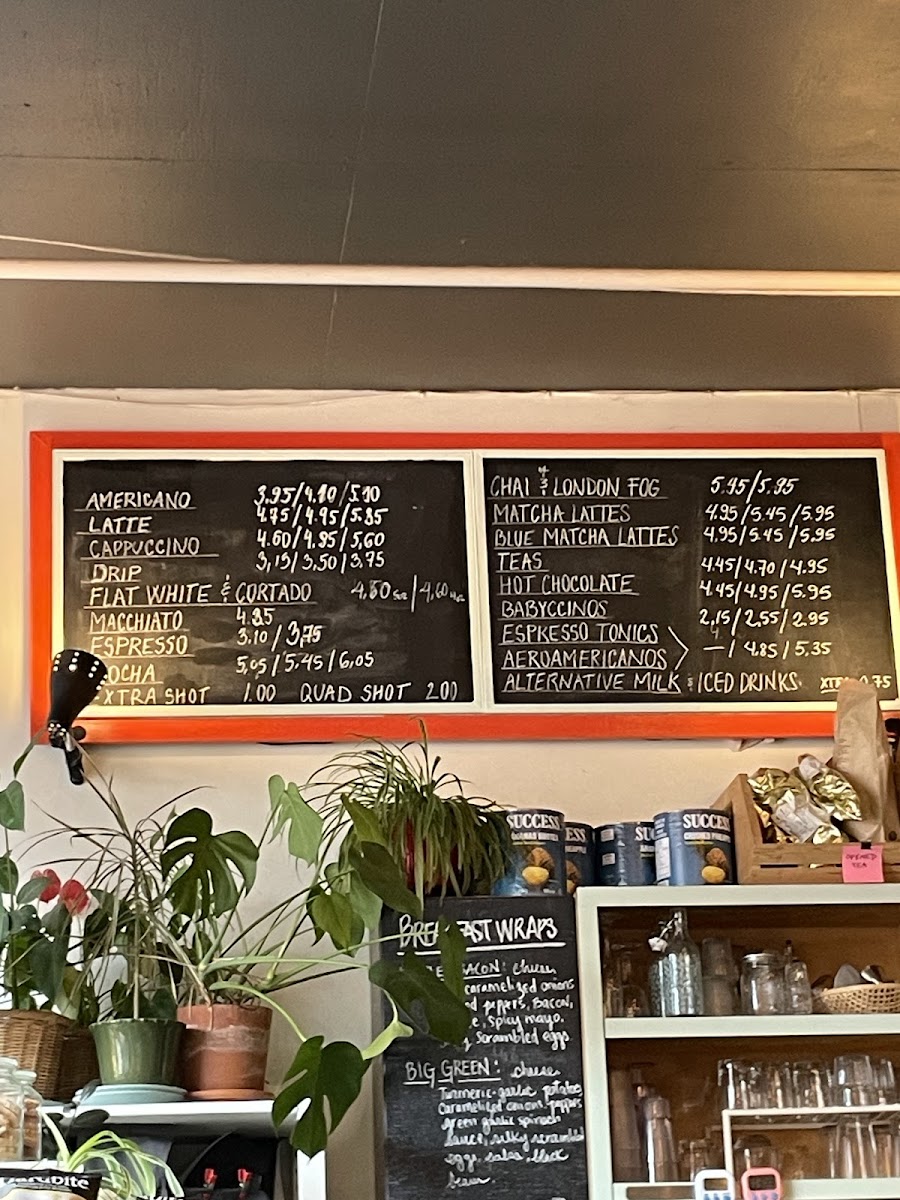 AMERICANO 3.95/4.10/5.10
LATTE 4.75/4.95/5.85
CAPPUCCINO 4.60/4.95/5,60
DRIP 3,15/3,50/3,75
FLAT WHITE & CORTADO 4.50 5oz/4,60
MACCHIATO 4.85
ESPRESSO 3.10/3,75
OCHA 5,05/5.45/6,05
XTRA SHOT 1.00 QUAD SHOT 2.00
CHAI & LONDON FOG 5.45/5.95
MATCHA LATTES 4.95/5.45/5.95
BLUE MATCHA LATTES 4.95/5.45/5.95
TEAS 4.45/4.70/4.95
HOT CHOCOLATE 4.45/4.95/5.95
BABYCCINOS 2,15/2,55/2.95
ESPRESSO TONICS
AEROAMERICANOS —/4.85/5.35
ALTERNATIVE MILK & ICED DRINKS 0.75
SUCCESS
SUCCESS
CRUSHED PINEAPPLE
OPENED
TEA
BREAKFAST WRAPS
BACON: cheese
caramelized onions
peppers, Bacon,
Spicy mayo,
Scrambled eggs
BIG GREEN: cheese
Turmeric-garlic potatoes
Caramelized onions, peppers
green garlic spinach
sauce, silky scrambled
eggs, salsa, black
beans.